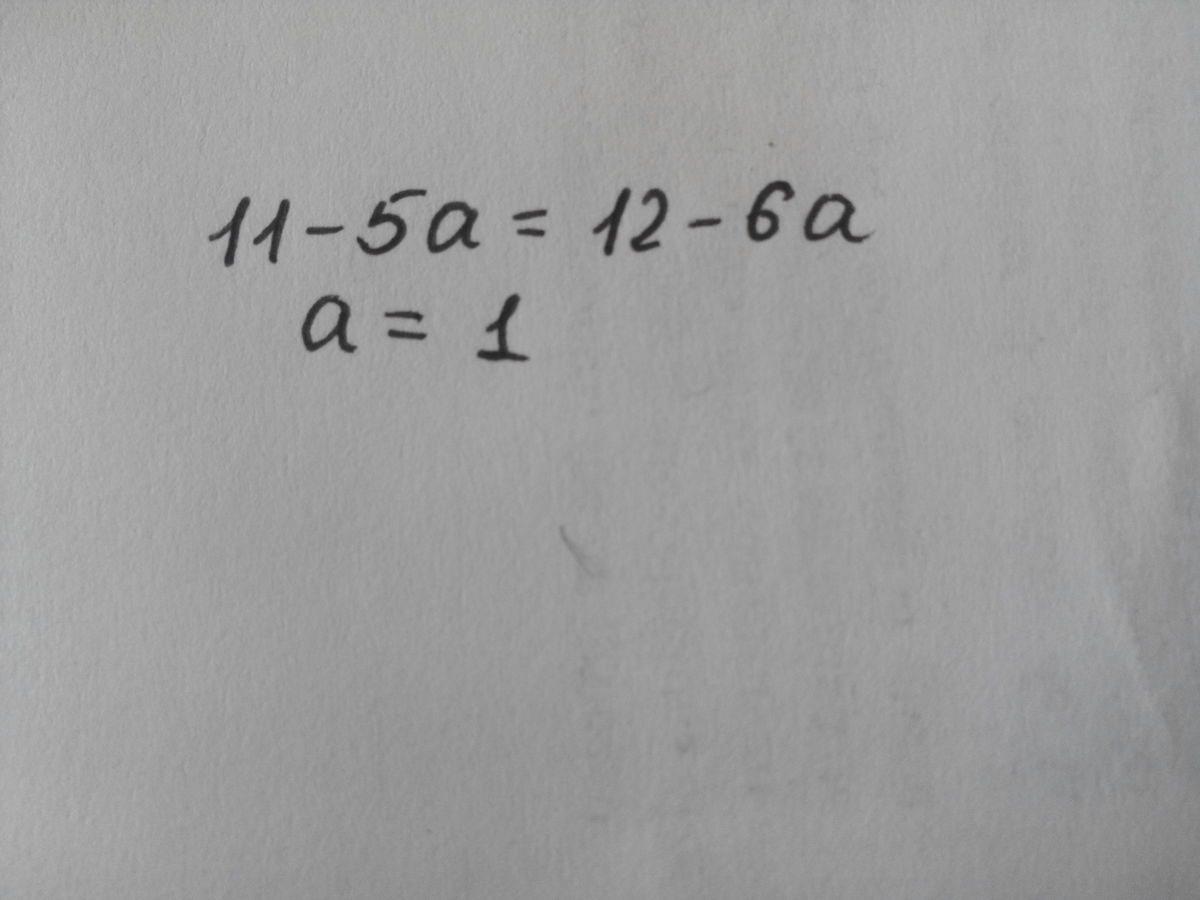 11 - 5a = 12 - 6a
a = 1